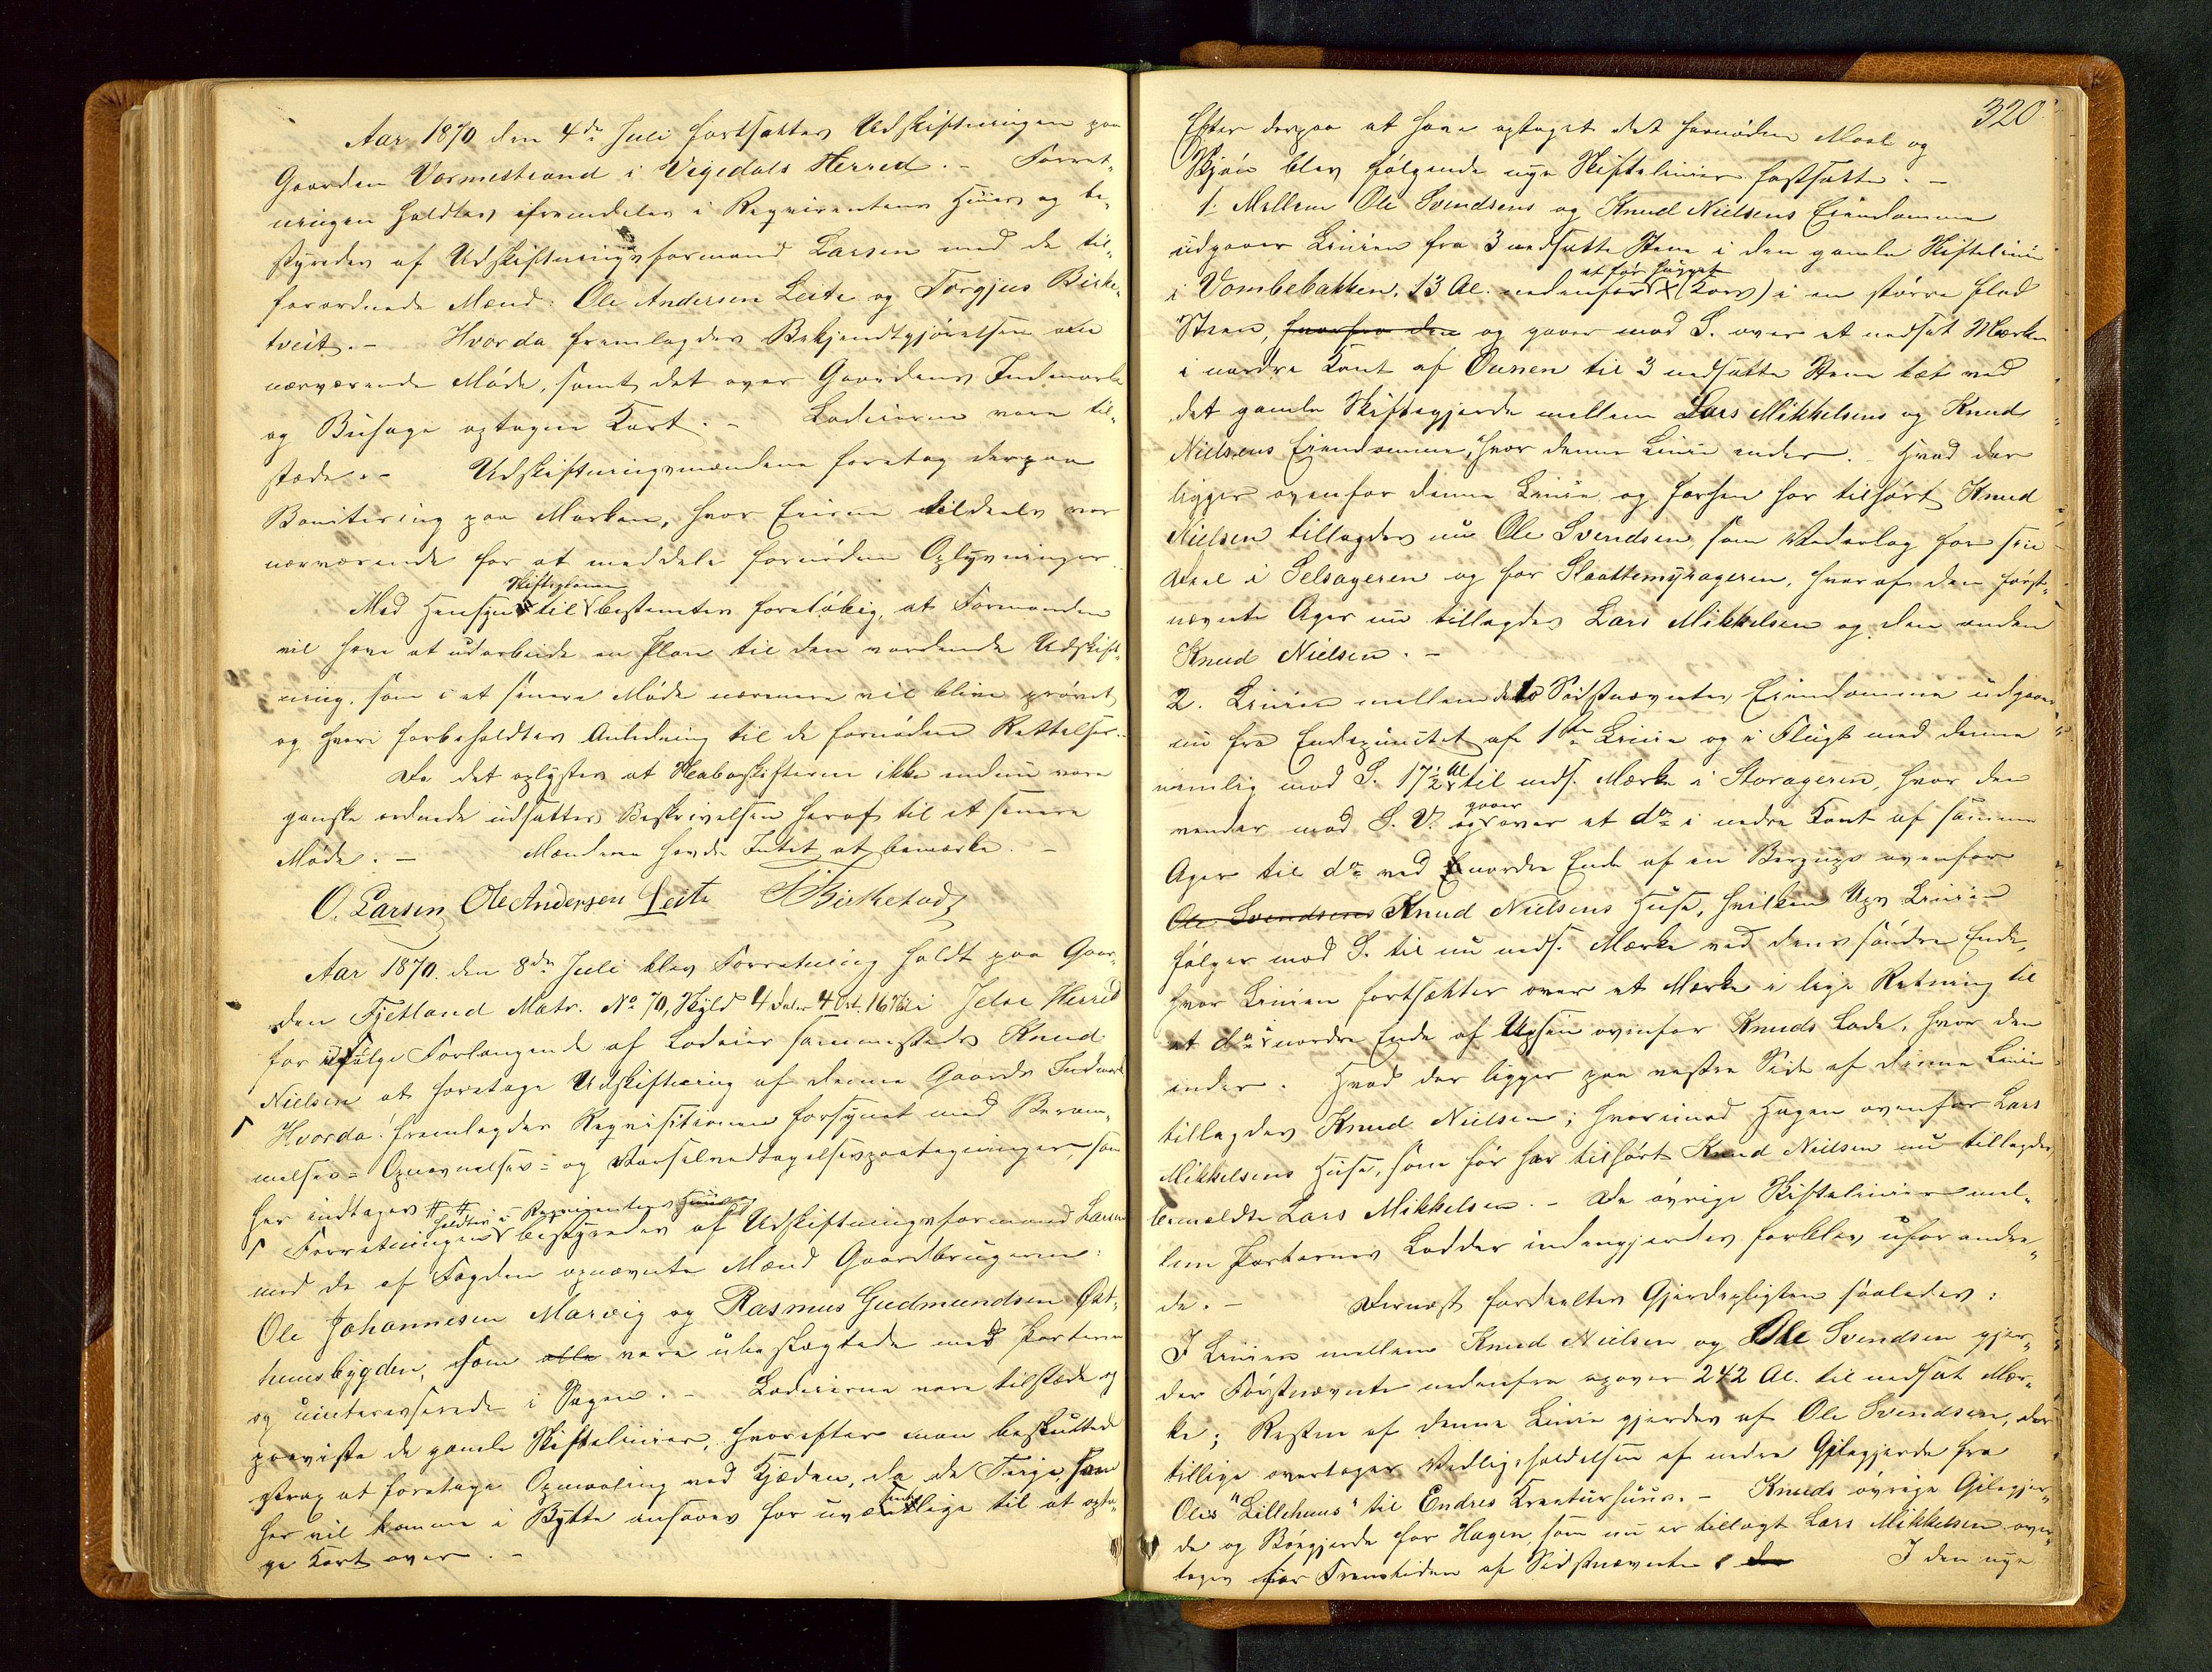 Aar 1870 den 4de Juli fortsattes Udskiftningen paa
Gaarden Vormestrand i Vigedals Herred. – Forret-
ningen holdtes fremdeles i Reqvirentens Huus og be-
styredes af Udskiftningsformand Larsen med de til-
forordnede Mænd: Ole Andersen Leite og Torgjus Birke-
tveit. – Hvorda fremlagdes Bekjendtgjørelsen om
nærværende Møde, samt det over Gaardens Indmark
og Buhage optagne Kart. – Lodeierne vare til-
stede. – Udskiftningsmændene foretog derpaa
Bonitering paa Marken, hvor Eierne tildeels var
nærværende for at meddele fornødne Oplysninger.
Skifteplanen
Med Hensyn til bestemtes foreløbig, at Formanden
vil have at udarbeide en Plan til den vordende Udskift-
ning, som i et senere Møde nærmere vil blive prøvet
og hvori forbeholdtes Anledning til de fornødne Rettelser.
Da det oplystes at Naboskifterne ikke endnu vare
ganske ordnede udsattes Beskrivelsen heraf til et senere
Møde. – Mændene havde Intet at bemærke. –
O. Larsen Ole Andersen Leite T Birketvedt
Aar 1870. den 8de Juli blev Forretning holdt paa Gaar-
den Fjetland Matr. No 70, Skyld 4 Daler 4 Ort. 16 Sk i Jelse Herred
for ifølge Forlangende af Lodeier sammesteds Knud
Nielsen at foretage Udskiftning af denne Gaards Indmark
Hvorda: fremlagdes Reqvisitionen forsynet med Beram-
melses- Opnævnelses- og Varselvedtagelsespaategninger, som
her indtages # #
holdtes i Reqvirentens Huus og
Forretningen bestyredes af Udskiftningsformand Larsen
med de af Fogden opnævnte Mænd Gaardbrugerne:
Ole Johannesen Marvig og Rasmus Gudmundsen Øst-
hunsbygden, som alle vare ubeslægtede med Parterne
og uinteresserede i Sagen. – Lodeierne vare tilstede og
paaviste de gamle Skiftelinier, hvorefter man besluttede
strax at foretage Opmaaling ved Kjæden, da de Teige, som
her vil komme i Bytte ansaaes for uvæsentlige til at opta-
ge Kart over. –
320
Efter derpaa at have optaget det fornødne Maal og
Skjøn blev følgende nye Skiftelinier fastsatte. –
1. Mellem Ole Svendsens og Knud Nielsens Eiendomme
udgaaer Linien fra 3 nedsatte Stene i den gamle Skiftelinie
et før hugget
i Vombebakken, 13 Al. nedenfor X (Kors) i en større flad
Steen, hvorfra den og gaaer mod S. over et nedsat Mærke
i nordre Kant af Ounen til 3 nedsatte Stene tæt ved
det gamle Skiftegjerde mellem Lars Mikkelsens og Knud
Nielsens Eiendomme, hvor denne Linie ender. – Hvad der
ligger ovenfor denne Linie og førhen har tilhørt Knud
Nielsen tillagdes nu Ole Svendsen, som Vederlag for sin
Deel i Selsageren og for Slaattemyrageren, hvoraf den først-
nævnte Ager nu tillagdes Lars Mikkelsen og den anden
Knud Nielsen. –
2. Linien mellem de to Sidstnævntes Eiendomme udgaaer
nu fra Endepunctet af 1ste Linie og i Flugt med denne
nemlig mod S. 17½ Al til neds. Mærke i Storageren, hvor den
vender mod S. V. og gaaer over et do i nedre Kant af samme
Ager til do ved nordre Ende af en Bergups ovenfor
Ole Svendsens Knud Nielsens Huse, hvilken Ups Linien
følger mod S. til nu neds. Mærke ved dens søndre Ende,
hvor Linien fortsætter over et Mærke i lige Retning til
et do i nordre Ende af Upsen ovenfor Knuds Lade, hvor den
ender. Hvad der ligger paa vestre Side af denne Linie
tillagdes Knud Nielsen; hvorimod Hagen ovenfor Lars
Mikkelsens Huse, som før har tilhørt Knud Nielsen nu tillagdes
bemeldte Lars Mikkelsen. – De øvrige Skiftelinier mel-
lem Parternes Lodder indengjerdes forblev uforandre-
de. – Dernæst fordeeltes Gjerdepligten saaledes:
I Linien mellem Knud Nielsen og Ole Svendsen gjer-
der Førstnævnte nedenfra opover 242 Al. til nedsat Mær-
ke; Resten af denne Linie gjerdes af Ole Svendsen, der
tillige overtager Vedligeholdelsen af nedre Gilegjerde fra
Oles "Lillehuus" til Endres Kreaturhuus. – Knuds øvrige Gilegjer-
de og Bøgjerde for Hagen, som nu er tillagt Lars Mikkelsen over-
tages for Fremtiden af Sidstnævnte. der I den nye